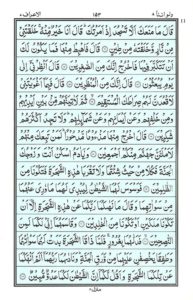 ولو اننا ٨ ١٥٣ الاعراف ٧
قَالَ مَا مَنَعَكَ اَلَّا تَسْجُدَ اِذْ اَمَرْتُكَ ؕ قَالَ اَنَا خَيْرٌ مِّنْهُ ۚ خَلَقْتَنِيْ
مِنْ نَّارٍ وَّخَلَقْتَهٗ مِنْ طِيْنٍ ۝ قَالَ فَاهْبِطْ مِنْهَا فَمَا يَكُوْنُ لَكَ
اَنْ تَتَكَبَّرَ فِيْهَا فَاخْرُجْ اِنَّكَ مِنَ الصّٰغِرِيْنَ ۝ قَالَ اَنْظِرْنِيْۤ اِلٰى
يَوْمِ يُبْعَثُوْنَ ۝ قَالَ اِنَّكَ مِنَ الْمُنْظَرِيْنَ ۝ قَالَ فَبِمَاۤ اَغْوَيْتَنِيْ
لَاَقْعُدَنَّ لَهُمْ صِرَاطَكَ الْمُسْتَقِيْمَ ۝ ثُمَّ لَاٰتِيَنَّهُمْ مِّنْۢ بَيْنِ اَيْدِيْهِمْ
وَمِنْ خَلْفِهِمْ وَعَنْ اَيْمَانِهِمْ وَعَنْ شَمَآئِلِهِمْ ؕ وَلَا تَجِدُ اَكْثَرَهُمْ
شٰكِرِيْنَ ۝ قَالَ اخْرُجْ مِنْهَا مَذْءُوْمًا مَّدْحُوْرًا ؕ لَمَنْ تَبِعَكَ مِنْهُمْ
لَاَمْلَئَنَّ جَهَنَّمَ مِنْكُمْ اَجْمَعِيْنَ ۝ وَيٰۤاٰدَمُ اسْكُنْ اَنْتَ وَزَوْجُكَ
الْجَنَّةَ فَكُلَا مِنْ حَيْثُ شِئْتُمَا وَلَا تَقْرَبَا هٰذِهِ الشَّجَرَةَ فَتَكُوْنَا مِنَ
الظّٰلِمِيْنَ ۝ فَوَسْوَسَ لَهُمَا الشَّيْطٰنُ لِيُبْدِيَ لَهُمَا مَا وٗرِيَ عَنْهُمَا
مِنْ سَوْاٰتِهِمَا وَقَالَ مَا نَهٰىكُمَا رَبُّكُمَا عَنْ هٰذِهِ الشَّجَرَةِ اِلَّاۤ اَنْ
تَكُوْنَا مَلَكَيْنِ اَوْ تَكُوْنَا مِنَ الْخٰلِدِيْنَ ۝ وَقَاسَمَهُمَاۤ اِنِّيْ لَكُمَا لَمِنَ
النّٰصِحِيْنَ ۝ فَدَلّٰىهُمَا بِغُرُوْرٍ ۚ فَلَمَّا ذَاقَا الشَّجَرَةَ بَدَتْ لَهُمَا سَوْاٰتُهُمَا
وَطَفِقَا يَخْصِفٰنِ عَلَيْهِمَا مِنْ وَّرَقِ الْجَنَّةِ ؕ وَنَادٰىهُمَا رَبُّهُمَاۤ اَلَمْ اَنْهَكُمَا
عَنْ تِلْكُمَا الشَّجَرَةِ وَاَقُلْ لَّكُمَاۤ اِنَّ الشَّيْطٰنَ لَكُمَا عَدُوٌّ مُّبِيْنٌ ۝
منزل ٢